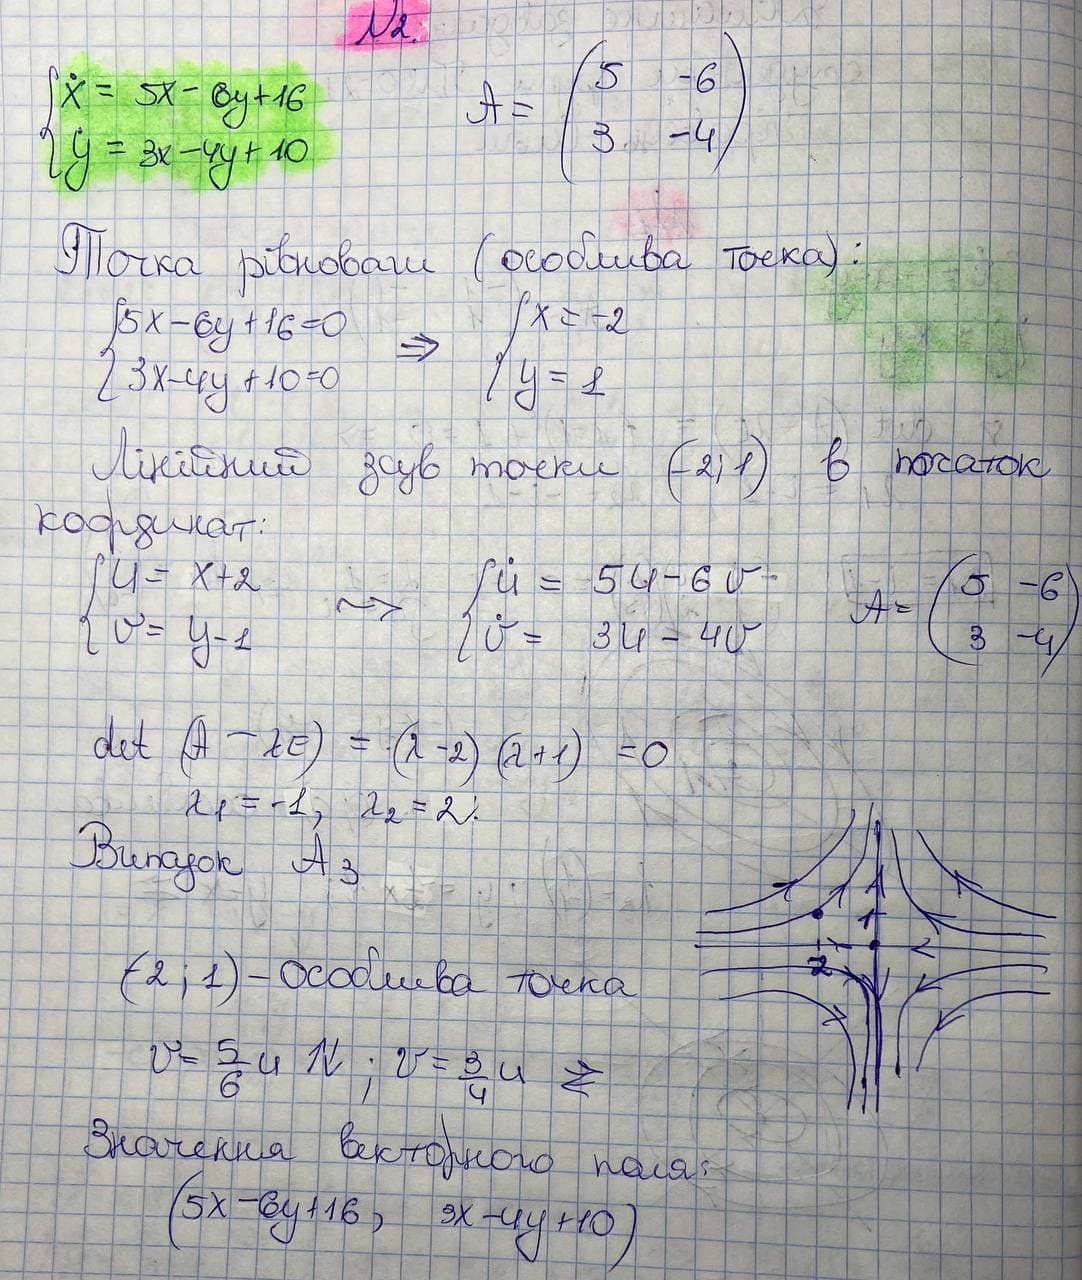 N2.
ẋ = 5x - 6y + 16
ẏ = 3x - 4y + 10
A = (5 -6
3 -4)
Точка рівноваги (особлива точка):
5x - 6y + 16 = 0 ⇒ x = -2
3x - 4y + 10 = 0 y = 1
Лінійний зсув точки (-2; 1) в початок
координат:
u = x + 2 ⇝ u̇ = 5u - 6v A = (5 -6
v = y - 1 v̇ = 3u - 4v 3 -4)
det (A - λE) = (λ - 2)(λ + 1) = 0
λ₁ = -1, λ₂ = 2.
Випадок A₃
1
-2
(-2; 1) - особлива точка
v = 5/6 u N; v = 3/4 u Z
Значення векторного поля:
(5x - 6y + 16, 3x - 4y + 10)